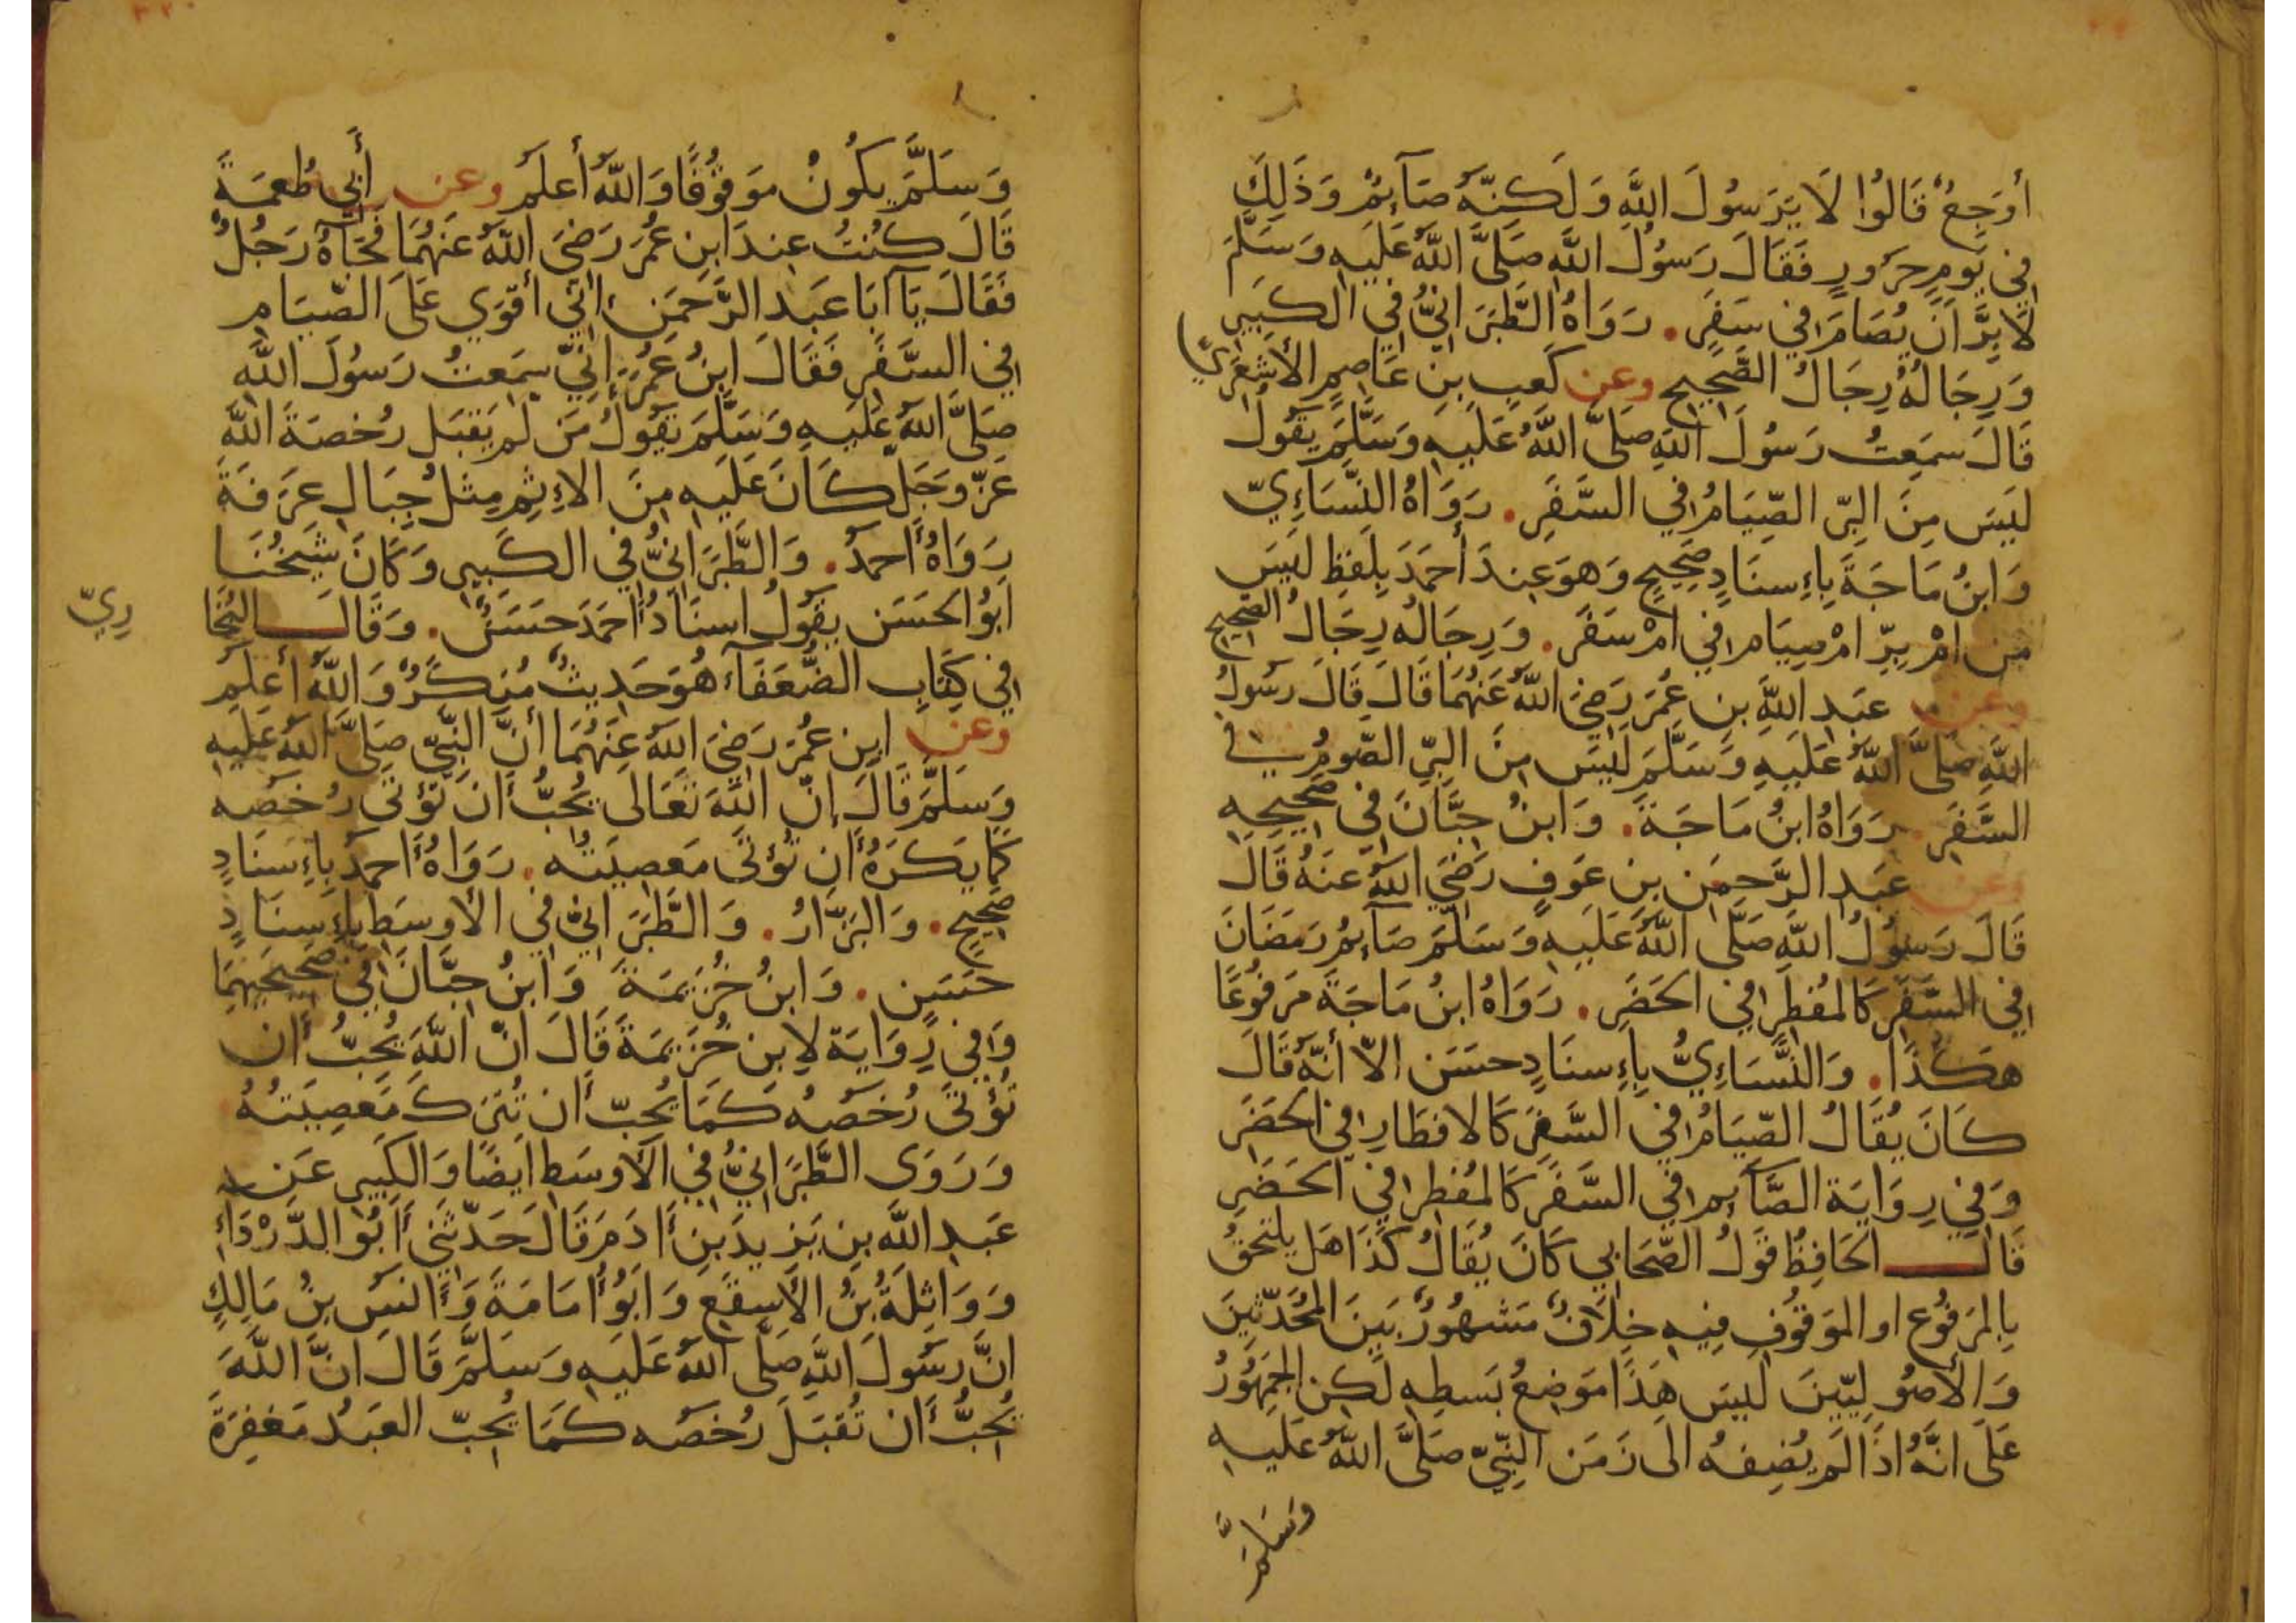 أَوْجَعٌ قَالُوا لَا يَرَسُولَ اللَّهِ وَلَكِنَّهُ صَآئِمٌ وَذَلِكَ
فِي يَوْمٍ حَرُورٍ فَقَالَ رَسُولُ اللَّهِ صَلَّى اللَّهُ عَلَيْهِ وَسَلَّمَ
لَا بِرَّ أَنْ يُصَامَ فِي سَفَرٍ . رَوَاهُ الطَّبَرَانِيُّ فِي الكَبِيرِ
وَرِجَالُهُ رِجَالُ الصَّحِيحِ وعن كَعْبِ بنِ عَاصِمٍ الأَشْعَرِيِّ
قَالَ سَمِعْتُ رَسُولَ اللَّهِ صَلَّى اللَّهُ عَلَيْهِ وَسَلَّمَ يَقُولُ
لَيْسَ مِنَ البِرِّ الصِّيَامُ فِي السَّفَرِ . رَوَاهُ النَّسَاءِيّ
وَابنُ مَاجَةَ بِاءِسنَادٍ صَحِيحٍ وَهوَ عِندَ أَحمَدَ بِلَفظِ لَيْسَ
مِن امْ بِرِّ امْ صِيَامِ فِي امْ سَفَرِ . وَرِجَالُه رِجَالُ الصَّحِيحِ
وعن عَبدِ اللَّهِ بنِ عُمَرَ رَضِيَ اللَّهُ عَنْهُمَا قَالَ قَالَ رَسُولُ
اللَّهِ صَلَّى اللَّهُ عَلَيْهِ وَسَلَّمَ لَيْسَ مِنَ البِرِّ الصَّومُ فِي
السَّفَرِ . رَوَاهُ ابنُ مَاجَةَ . وَابنُ حِبَّانَ فِي صَحِيحِهِ
وعن عَبدِ الرَّحمَنِ بنِ عَوفٍ رَضِيَ اللَّهُ عَنهُ قَالَ
قَالَ رَسُولُ اللَّهِ صَلَّى اللَّهُ عَلَيْهِ وَسَلَّمَ صَآئِمُ رَمَضَانَ
فِي السَّفَرِ كَالمُفطِرِ فِي الحَضَرِ . رَوَاهُ ابنُ مَاجَةَ مَرفُوعًا
هَكَذَا . وَالنَّسَاءِيُّ بِاءِسنَادٍ حسَن الاّ أنّهُ قَالَ
كَانَ يُقَالُ الصِّيَامُ فِي السَّفَرِ كَالافطَارِ فِي الحَضَرِ
وَفِي رِوَايَةِ الصَّآئِم فِي السَّفَرِ كَالمُفطِرِ فِي الحَضَرِ
قَالَ الحَافِظُ قَولُ الصّحَابِي كَانَ يُقَالُ كَذَا هَل يَلتحقُ
بِالمَرفُوعِ او المَوقُوفِ فِيهِ خِلَافٌ مَشهُورٌ بَينَ المُحَدِّثِينَ
وَالأُصُولِيِّينَ لَيسَ هَذَا مَوضِعُ بَسطِهِ لَكِن الجُمهُورُ
عَلَى انَّهُ اذَا لَم يُضِفهُ الَى زَمَنِ النَّبِيّ صَلَّى اللَّهُ عَلَيهِ
وَسَلَّمَ
وَسَلَّمَ يكُونُ مَوقُوفًا وَاللَّهُ أَعلَم وعن أَبِي طُعمَةَ
قَالَ كُنتُ عِندَ ابنِ عُمَرَ رَضِيَ اللَّهُ عَنهُمَا فَجَآءَهُ رَجُلٌ
فَقَالَ يَآ ابَا عَبدِ الرَّحمَنِ اِنّي أَقوَى عَلَى الصِّيَامِ
فِي السَّفَرِ فَقَالَ ابنُ عُمَرَ اِنِّي سَمِعتُ رَسُولَ اللَّهِ
صَلَّى اللَّهُ عَلَيهِ وَسَلَّمَ يَقُولُ مَن لَم يَقبَل رُخصَةَ اللَّهِ
عَزّ وَجَل كَانَ عَلَيهِ مِنَ الاءِثمِ مِثلُ جِبَالِ عَرَفَةَ
رَوَاهُ أَحمدُ . وَالطَّبَرَانِيُّ فِي الكَبِيرِ وَكَانَ شَيخُنَا
ابُو الحَسَنِ يقُولُ اسنَادُ احمَدَ حَسَنٌ . وَقَالَ البُخَا
رِيّ
فِي كِتَابِ الضُّعَفَآءِ هُوَ حَدِيثٌ مُنكَرٌ وَاللَّهُ أَعلَم
وعن ابنِ عُمَرَ رَضِيَ اللَّهُ عَنهُمَا أنَّ النَّبِيّ صَلَّى اللَّهُ عَلَيهِ
وَسَلَّمَ قَالَ إنّ اللَّهَ تَعَالى يُحِبُّ أن تُؤتَى رُخَصُه
كَمَا يَكرَهُ أَن تُؤتَى مَعصِيَتُه . رَوَاهُ أَحمدُ بِاءِسنَادٍ
صَحِيحٍ . وَالبَزَّارُ . وَالطَّبَرَانِيّ فِي الأَوسَطِ بِاءِسنَادٍ
حَسَنٍ . وَابنُ خُزَيمَةَ وَابنُ حِبَّانَ فِي صَحِيحَيهِمَا
وَفِي رِوَايَة لِابنِ خُزَيمَةَ قَالَ انّ اللَّهَ يُحِبُّ أَن
تُؤتَى رُخَصُهُ كَمَا يُحِبّ أَن تُترَكَ مَعصِيَتُهُ
وَرَوَى الطَّبَرَانِيُّ فِي الأَوسَطِ ايضًا وَالكَبِيرِ عَن
عَبدِ اللَّه بنِ يَزِيدَ بنِ أَادَم قَالَ حَدَّثَنِي أَبُو الدَّرْدَاءِ
وَوَاثِلَةُ بنُ الأَسقَعِ وَابُو أُمَامَةَ وَأَنَسُ بنُ مَالِكٍ
انَّ رَسُولَ اللَّهِ صَلَّى اللَّهُ عَلَيهِ وَسَلَّمَ قَالَ انَّ اللَّهَ
يُحِبُّ أَن تُقبَلَ رُخَصُه كَمَا يُحِبّ العَبدُ مَغفِرَةَ